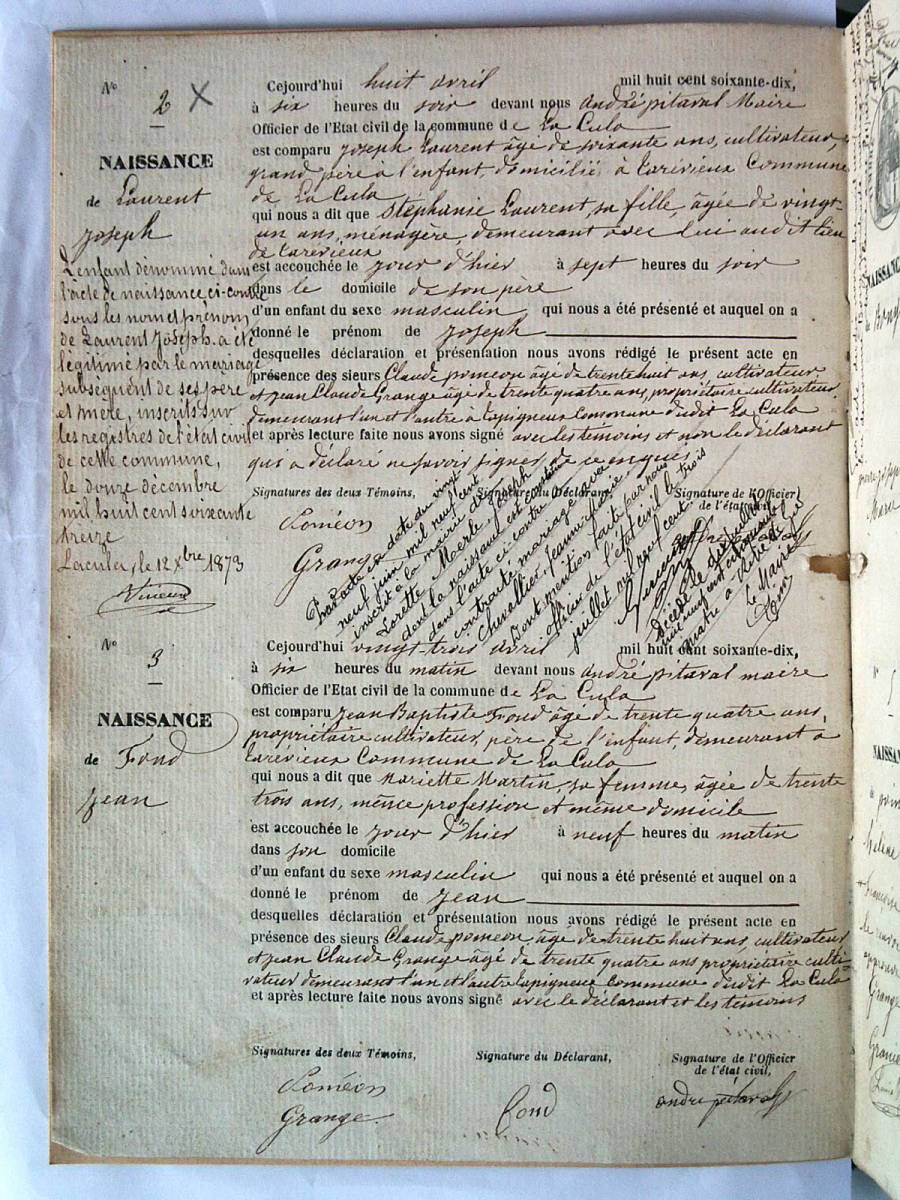 N° 2 X
NAISSANCE
de Laurent
Joseph
L'enfant dénommé dans
l'acte de naissance ci-contre
sous les nom et prénom
de Laurent Joseph a été
légitimé par le mariage
subséquent de ses père
et mère, inscrits sur
les registres de l'état civil
de cette commune,
le douze décembre
mil huit cent soixante
treize
Lacula, le 12 Xbre 1873
Cejourd'hui huit avril mil huit cent soixante-dix,
à six heures du soir devant nous André pitaval Maire
Officier de l'Etat civil de la commune de La Cula
est comparu Joseph Laurent âgé de soixante ans, cultivateur,
grand père à l'enfant, domicilié à Carévieux Commune
de La Cula
qui nous a dit que Stéphanie Laurent, sa fille, âgée de vingt-
un ans, ménagère, demeurant avec lui audit lieu
de Carévieux
est accouchée le jour d'hier à sept heures du soir
dans le domicile de son père
d'un enfant du sexe masculin qui nous a été présenté et auquel on a
donné le prénom de Joseph
desquelles déclaration et présentation nous avons rédigé le présent acte en
présence des sieurs Claude pomeon âgé de trente huit ans, cultivateur
et Jean Claude Grange âgé de trente quatre ans, propriétaire cultivateur
demeurant l'un et l'autre à Lapigneux Commune dudit La Cula
et après lecture faite nous avons signé avec les témoins et non le déclarant
qui a déclaré ne savoir signer de ce enquis
Signatures des deux Témoins, Signature du Déclarant, Signature de l'Officier
de l'état civil,
Poméon
Grange
Par acte en date du vingt
neuf juin mil neuf cent
inscrit à la mairie de
Lorette Merle Joseph
dont la naissance est constatée
dans l'acte ci-contre a
contracté mariage avec
Chevallier Jeanne Marie
Dont mention faite par nous
officier de l'état civil le trois
juillet mil neuf cent
Décédé
mil neuf cent
quatre à
Le Maire
N° 3
NAISSANCE
de Fond
Jean
Cejourd'hui vingt trois avril mil huit cent soixante-dix,
à six heures du matin devant nous andré pitaval maire
Officier de l'Etat civil de la commune de La Cula
est comparu Jean Baptiste Fond âgé de trente quatre ans,
propriétaire cultivateur, père de l'enfant, demeurant à
Carévieux Commune de La Cula
qui nous a dit que Mariette Martin, sa femme, âgée de trente
trois ans, même profession et même domicile
est accouchée le jour d'hier à neuf heures du matin
dans son domicile
d'un enfant du sexe masculin qui nous a été présenté et auquel on a
donné le prénom de Jean
desquelles déclaration et présentation nous avons rédigé le présent acte en
présence des sieurs Claude pomeon, âgé de trente huit ans, cultivateur
et Jean Claude Grange âgé de trente quatre ans propriétaire culti-
vateur demeurant l'un et l'autre Lapigneux Commune dudit La Cula
et après lecture faite nous avons signé avec le déclarant et les témoins
Signatures des deux Témoins, Signature du Déclarant, Signature de l'Officier
de l'état civil,
Poméon
Grange
Fond
andre pitaval
NAISSANCE
N° 5
NAISSANCE
Grange